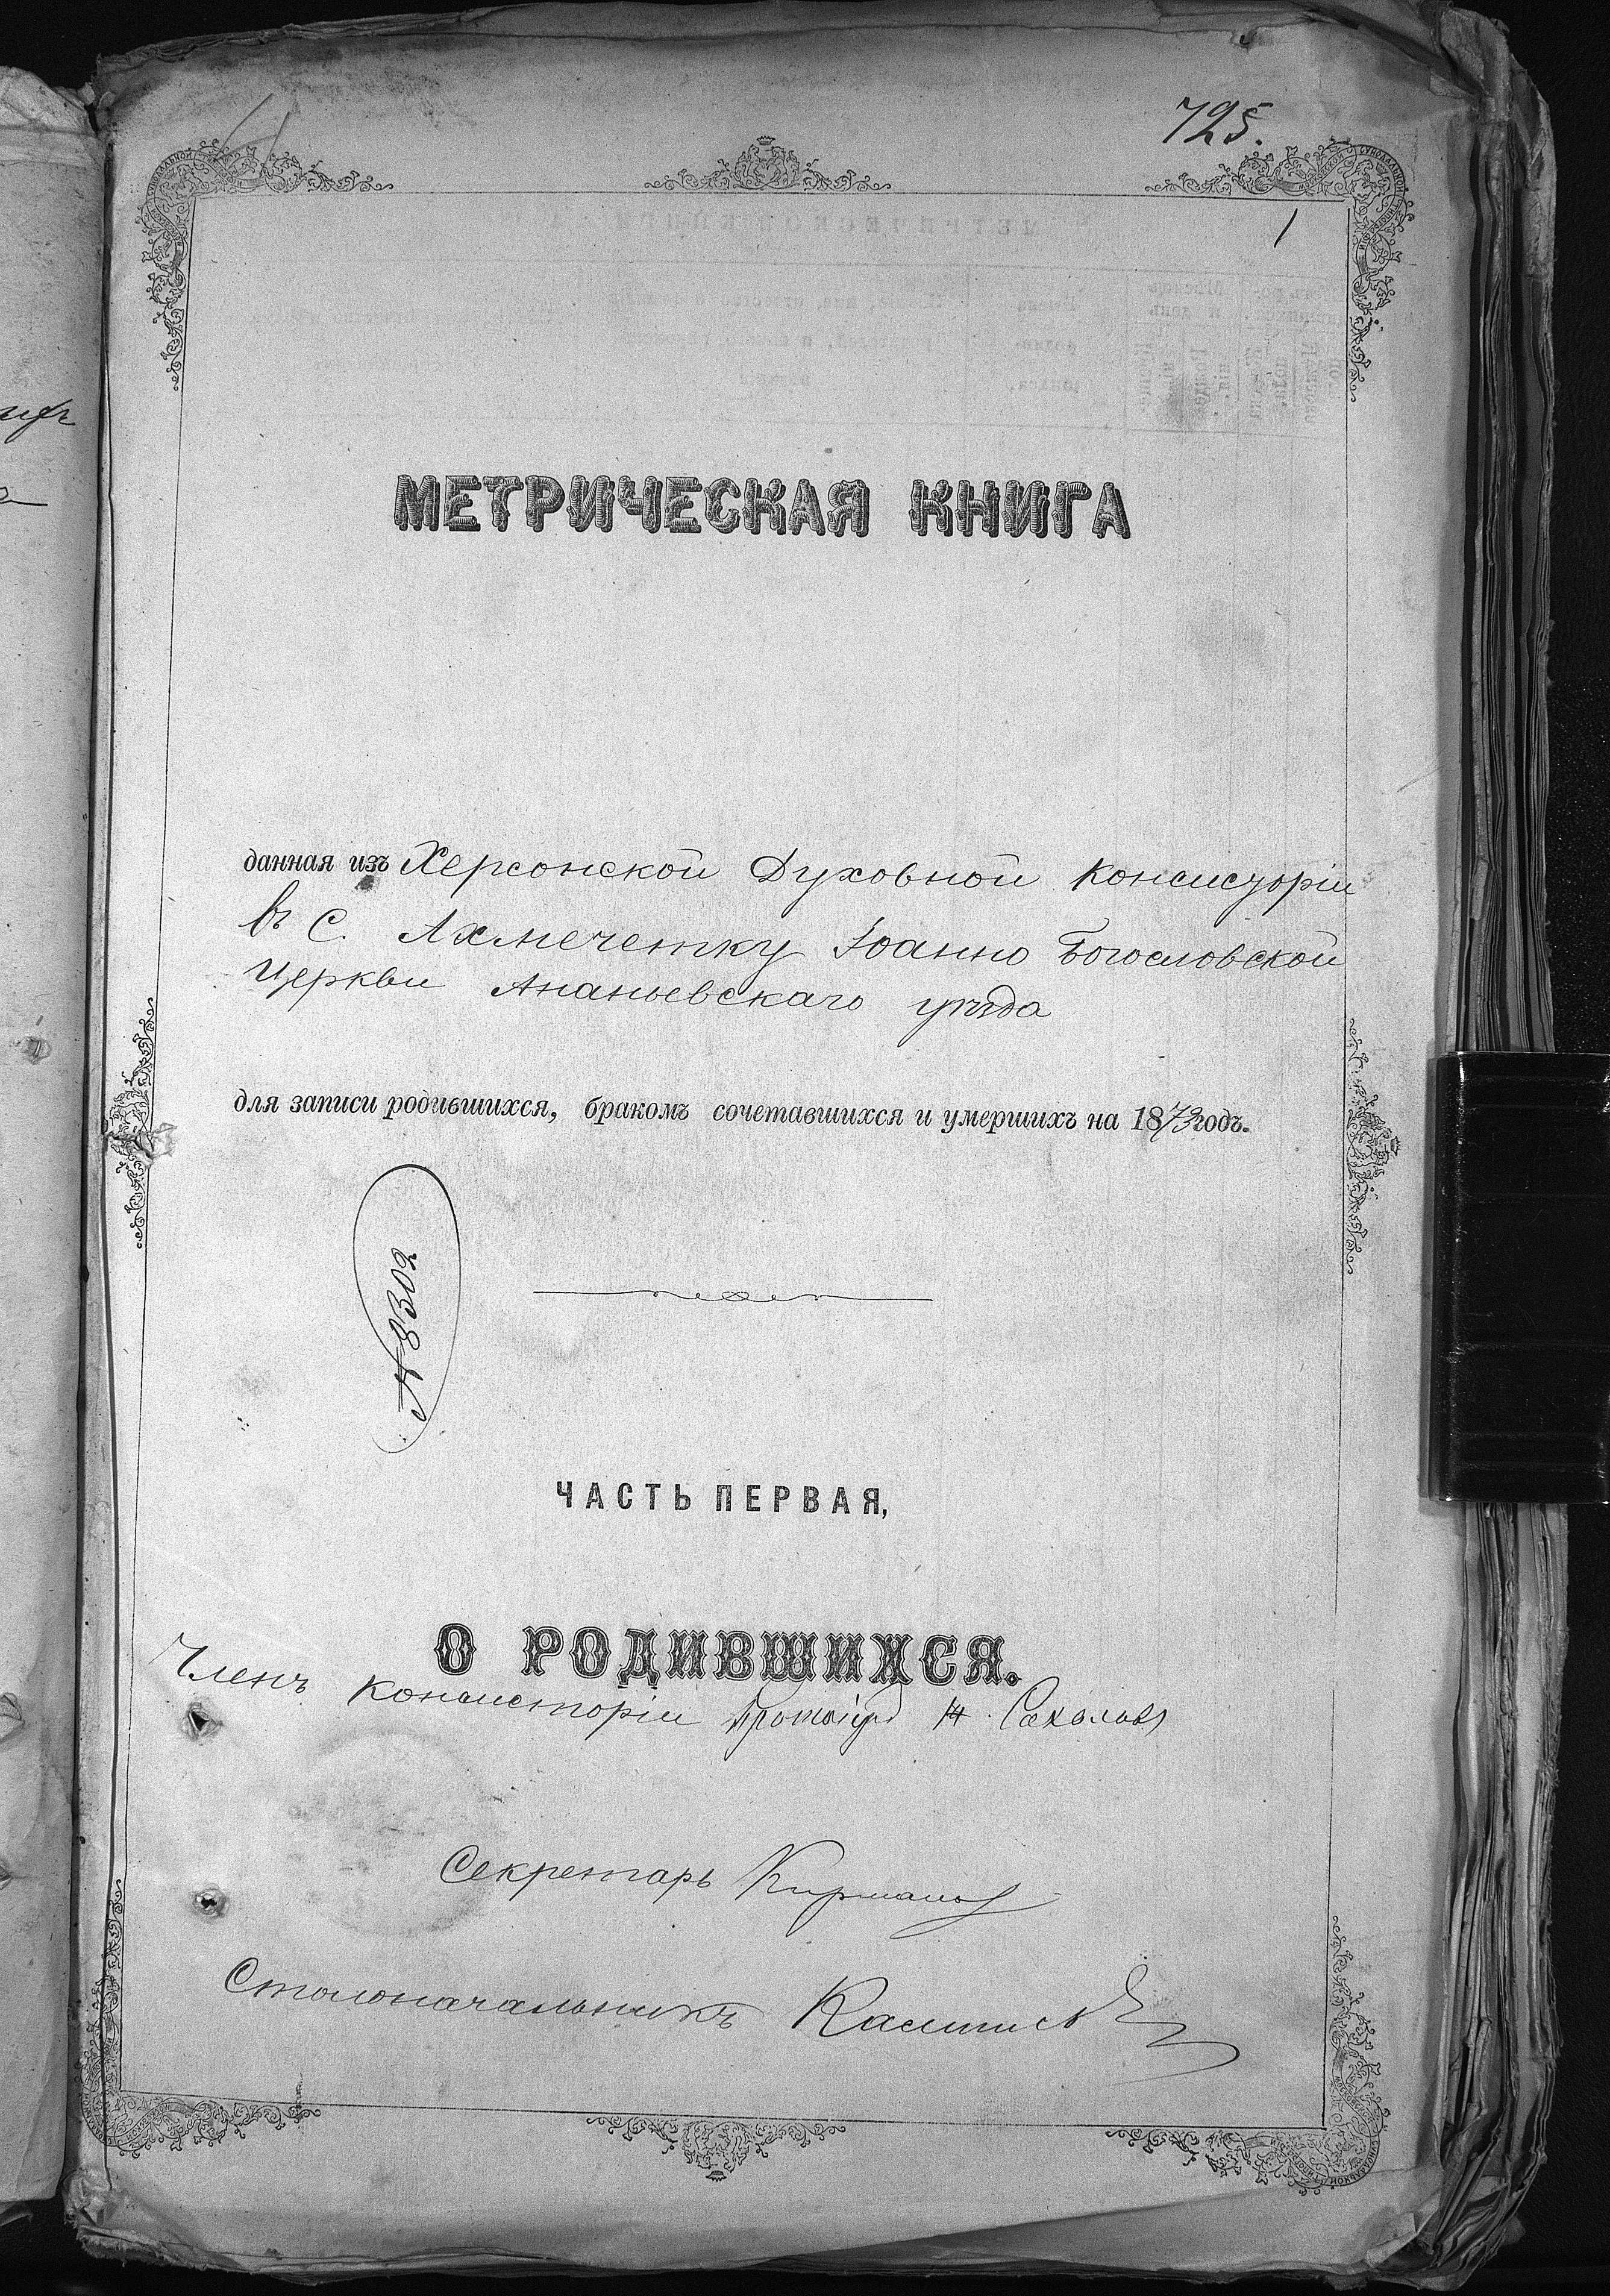 725.
1
МЕТРИЧЕСКАЯ КНИГА
данная изъ Херсонской Духовной Консисторіи
въ С. Ахмечетку Іоанно Богословской
Церкви Ананьевскаго уѣзда
для записи родившихся, бракомъ сочетавшихся и умершихъ на 1873 годъ.
№ 8302
ЧАСТЬ ПЕРВАЯ,
О РОДИВШИХСЯ.
Членъ Консисторіи
Секретарь
Столоначальникъ